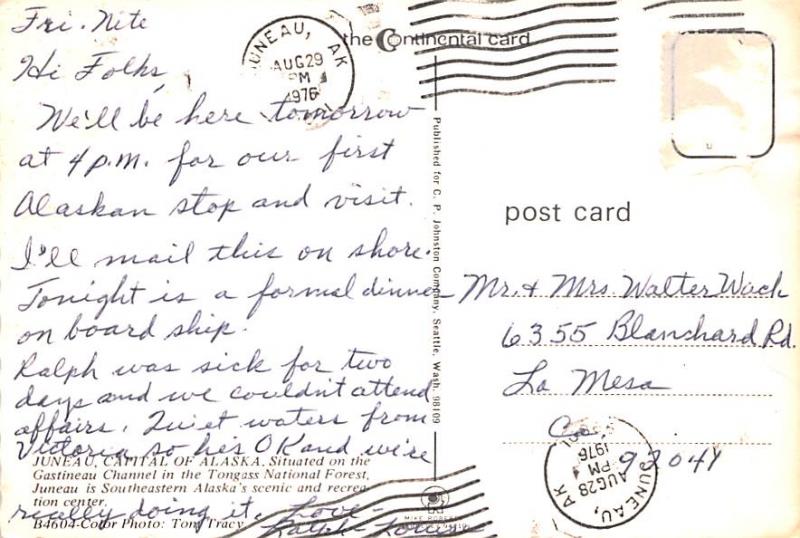 Fri. Nite
Hi Folks,
We'll be here tomorrow
at 4 p.m. for our first
Alaskan stop and visit.
I'll mail this on shore.
Tonight is a formal dinner
on board ship.
Ralph was sick for two
days and we couldn't attend
affairs. Quiet waters from
Victoria so he's OK and we're
really doing it. Love -
Ralph
JUNEAU, CAPITAL OF ALASKA. Situated on the
Gastineau Channel in the Tongass National Forest,
Juneau is Southeastern Alaska's scenic and recrea-
tion center.
B4604-Color Photo: Tony Tracy
JUNEAU, AK
AUG 29
PM
1976
the Continental card
Published for C. P. Johnston Company, Seattle, Wash. 98109
post card
Mr. & Mrs. Walter Wack
6355 Blanchard Rd.
La Mesa
Ca.
92041
JUNEAU, AK
AUG 28
PM
1976